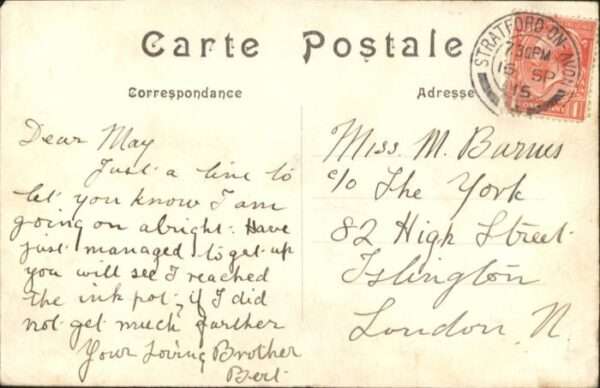 Carte Postale
Correspondance
Adresse
STRATFORD-ON-AVON
7.30PM
16 SP
15
Dear May
Just a line to
let you know I am
going on alright. Have
just managed to get up
you will see I reached
the ink pot, if I did
not get much further
Your Loving Brother
Bert.
Miss. M. Burns
c/o The York
82 High Street
Islington
London. N.